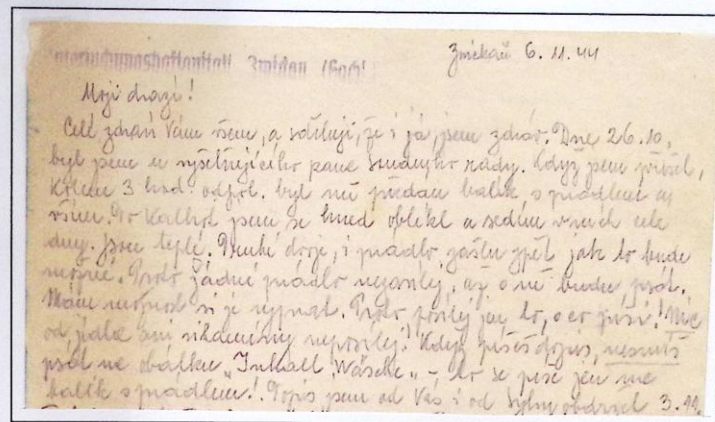 Untersuchungshaftanstalt Zwickau (Sachs.)
Zwickau 6.11.44
Moji drazí!
Celé zdraví Vám všem, a sděluji, že i já jsem zdráv. Dne 26.10.
byl jsem u vyšetřujícího pana soudního rady. Když jsem přišel,
kolem 3 hod. odpol. byl mě předán balík s prádlem a
vším. Do kalhot jsem se hned oblékl a sedím v nich celé
dny. Jsou teplé. Druhé dvoje, i prádlo zašlu zpět jak to bude
možné. Proto žádné prádlo neposílej, až o ně budu psát.
Mám možnost si je vyprat. Proto posílej jen to, o co píši! Nic
od jídla ani vitamíny neposílej! Když píšeš dopis, nesmíš
psát na obálku "Inhalt Wäsche" – to se píše jen na
balík s prádlem! Dopis jsem od Vás i od obdržel 3.11.